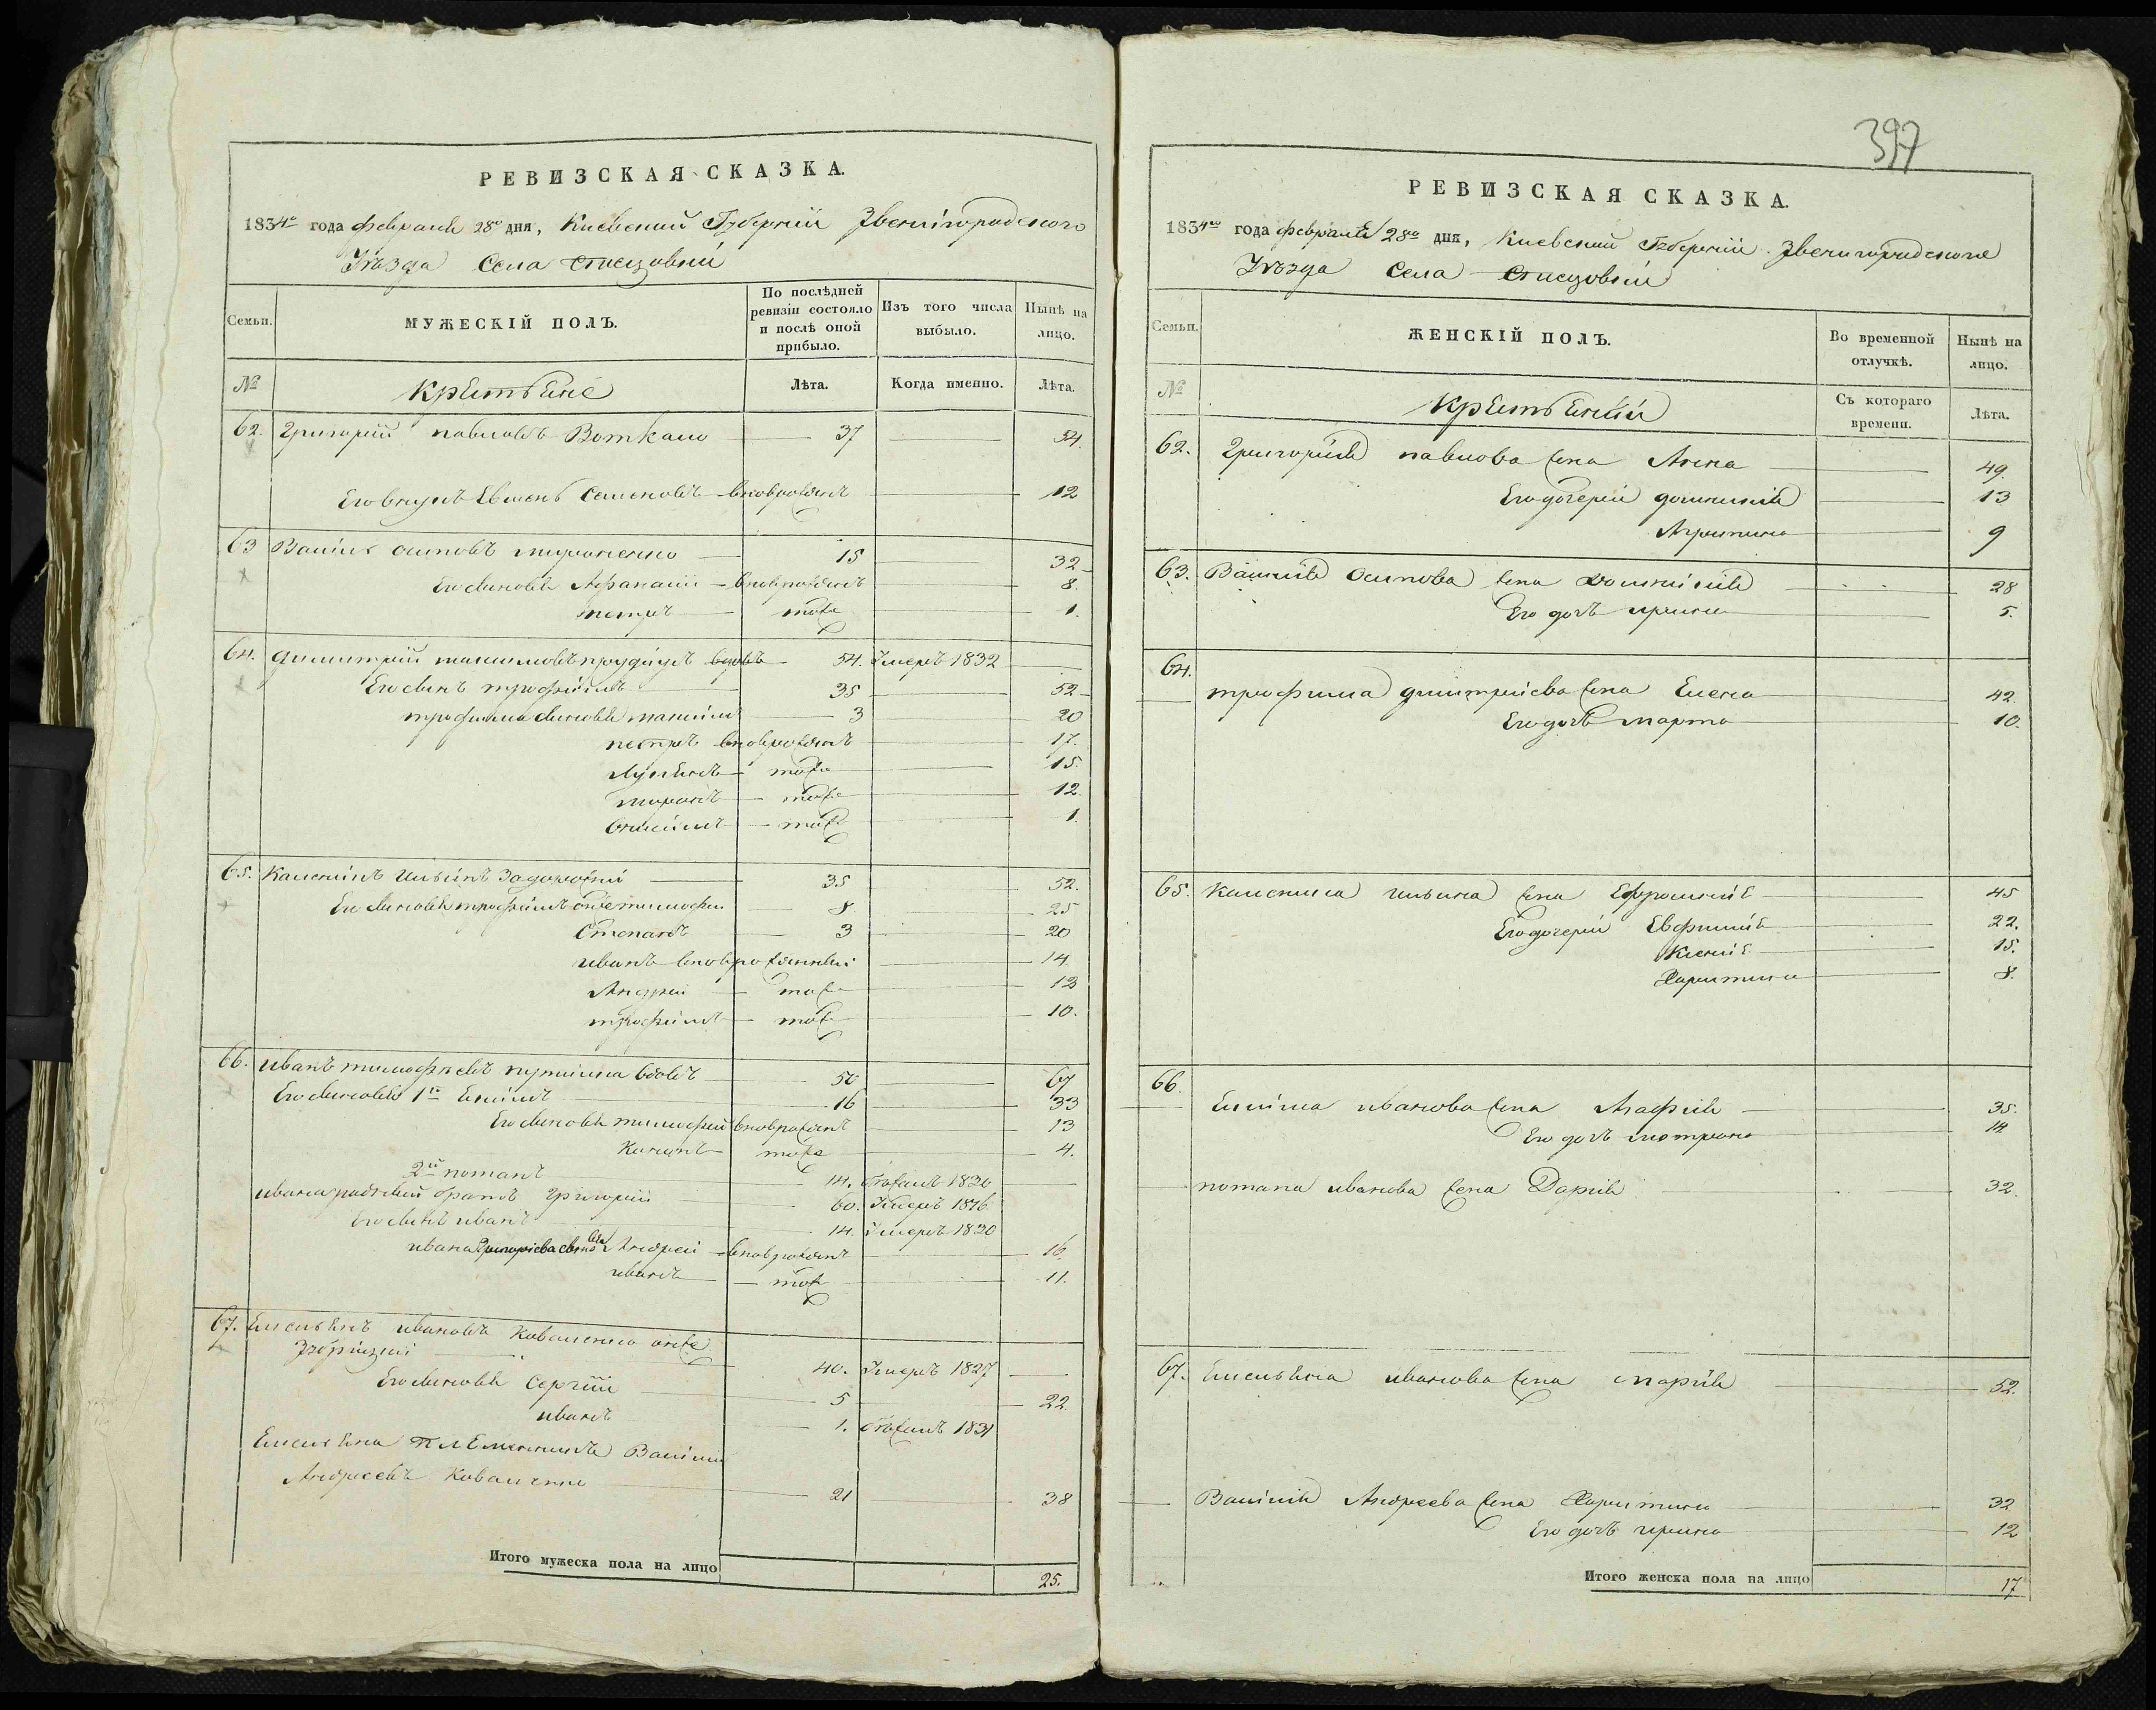 397
РЕВИЗСКАЯ СКАЗКА.
1834го года февраля 28го дня, Киевской Губернии Звенигородского
Уѣзда Села Стецовки
Семьи.
МУЖЕСКІЙ ПОЛЪ.
По послѣдней ревизіи состояло и послѣ оной прибыло.
Изъ того числа выбыло.
Нынѣ на лицо.
№
Крестьяне
Лѣта.
Когда именно.
Лѣта.
62. Григорий павловъ 37 54.
Его внукъ Евмень Семеновъ вноврожденъ 12
63 Василь осиповъ мироненко 15 32
Его сыновья Афанасий вноврожденъ 8.
петръ тоже 1.
64. димитрий максимовъ вдовъ 54. Умеръ 1832
Его сынъ трофимъ 35 52
трофима сыновья максимъ 3 20
петръ вноврожденъ 17.
Лукьянъ тоже 15.
миронъ тоже 12.
тоже 1.
65. Калениќъ ильинъ Задорожний 35 52.
Его сыновья трофимъ онъже тимофей 8 25
Степанъ 3 20
иванъ вноврожденный 14
Андрей тоже 13
трофимъ тоже 10.
66. иванъ тимофѣевъ вдовъ 50 67
Его сыновья 1й Екимъ 16 33
Его сыновья тимофей вноврожденъ 13
Кононъ тоже 4.
2й потапъ 14. 1830
ивана родной братъ григорий 60. Умеръ 1816
Его сынъ иванъ 14. Умеръ 1820
ивана Григориева сыновья Андрей вноврожденъ 16.
иванъ тоже 11.
67. Емельянъ ивановъ Коваленко онже
40. Умеръ 1827
Его сыновья Сергий 5 22.
иванъ 1. 1831
Емельяна племянникъ Василий
Андреевъ Коваленко 21 38
Итого мужеска пола на лицо 25.
РЕВИЗСКАЯ СКАЗКА.
1834го года февраля 28го дня, Киевской Губернии Звенигородского
Уѣзда Села Стецовки
Семьи.
ЖЕНСКІЙ ПОЛЪ.
Во временной отлучкѣ.
Нынѣ на лицо.
№
Крестьянки
Съ котораго времени.
Лѣта.
62. Григория павлова жена Анна 49.
Его дочери домникия 13
Агрипина 9
63. Василия осипова жена домникия 28
Его дочь ирина 5.
64.
трофима димитриева жена Елена 42.
Его дочь марта 10.
65. Каленика ильина жена Ефросиния 45
Его дочери Евфимия 22.
Ксения 15.
Харитина 8.
66.
Екима иванова жена Агафия 35.
Его дочь мотрона 14
потапа иванова жена Дария 32.
67. Емельяна иванова жена мария 52.
Василия Андреева жена Харитина 32
Его дочь ирина 12
Итого женска пола на лицо 17